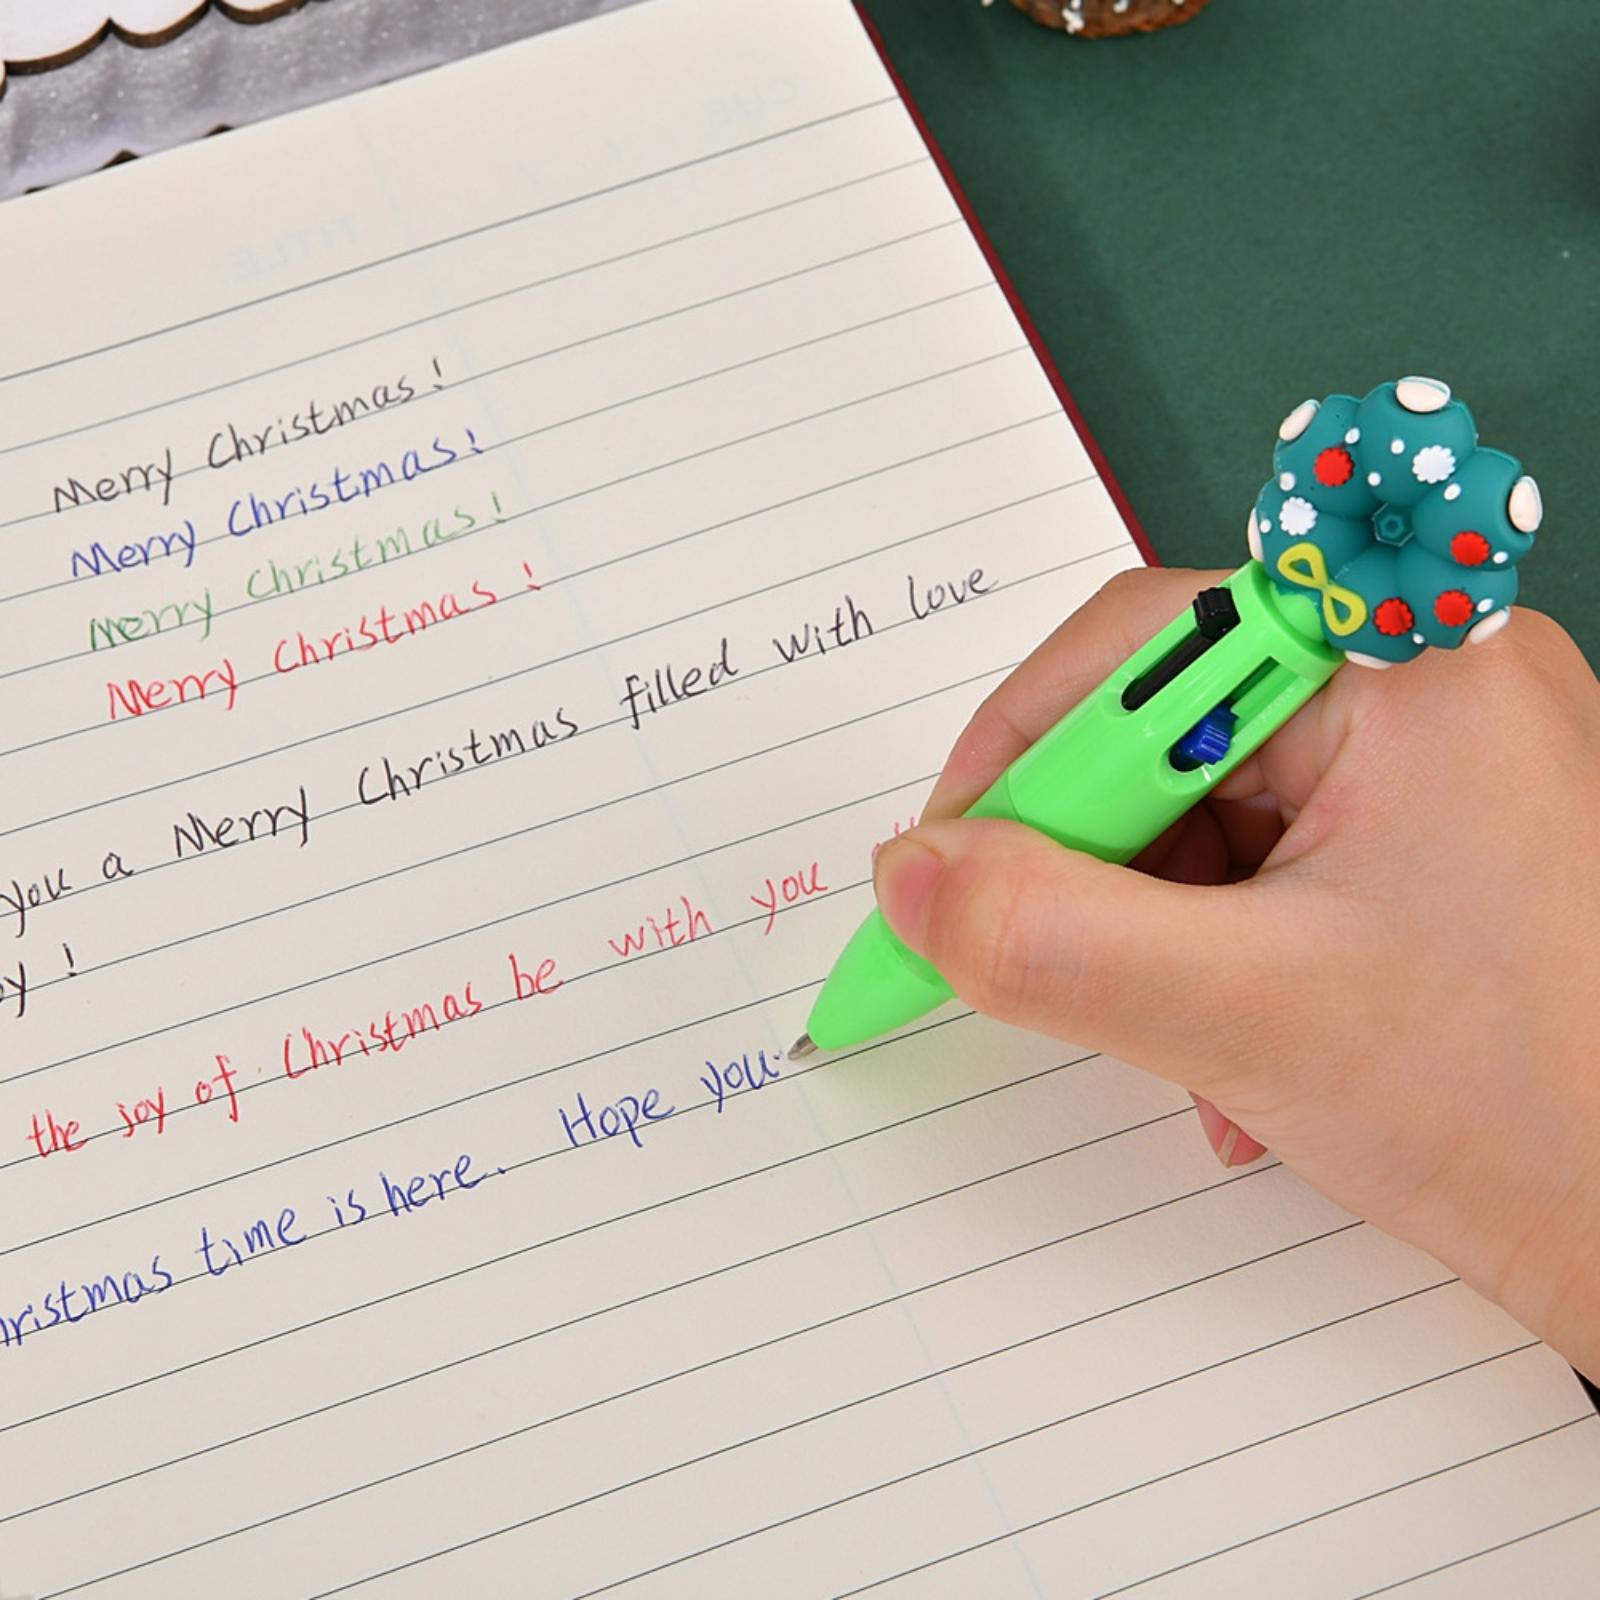 Merry Christmas!
Merry Christmas!
Merry Christmas!
Merry Christmas!
you a Merry Christmas filled with love
oy!
the joy of Christmas be with you
hristmas time is here. Hope you